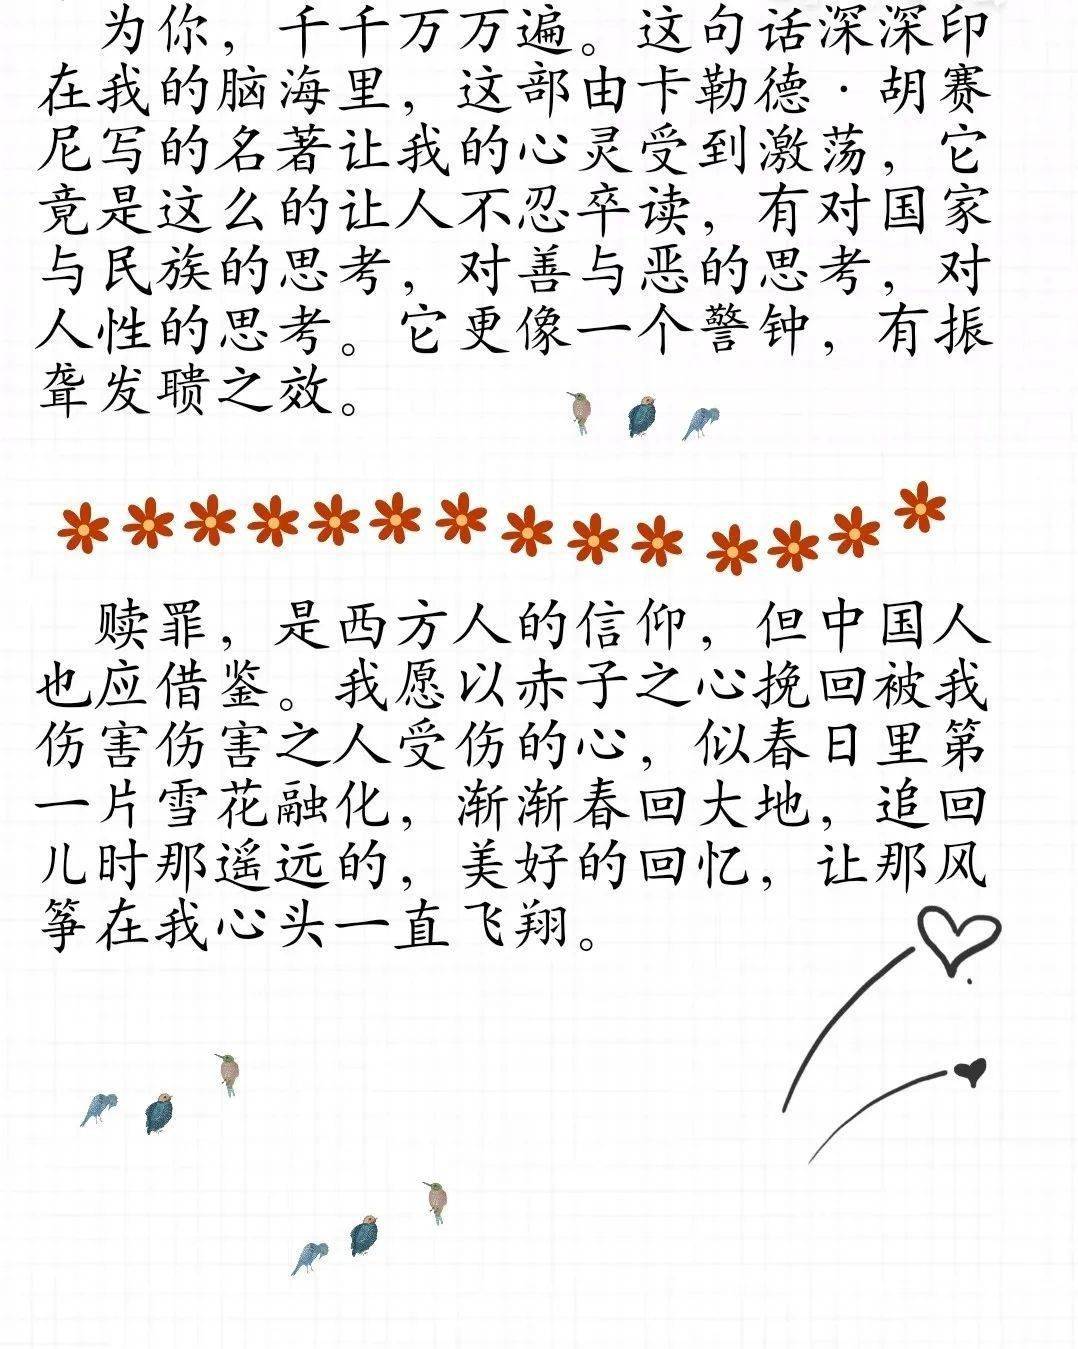 为你，千千万万遍。这句话深深印
在我的脑海里，这部由卡勒德·胡赛
尼写的名著让我的心灵受到激荡，它
竟是这么的让人不忍卒读，有对国家
与民族的思考，对善与恶的思考，对
人性的思考。它更像一个警钟，有振
聋发聩之效。
赎罪，是西方人的信仰，但中国人
也应借鉴。我愿以赤子之心挽回被我
伤害伤害之人受伤的心，似春日里第
一片雪花融化，渐渐春回大地，追回
儿时那遥远的，美好的回忆，让那风
筝在我心头一直飞翔。